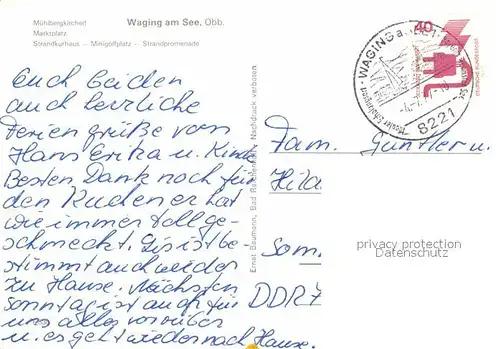 Mühlbergkircherl
Marktplatz
Strandkurhaus – Minigolfplatz – Strandpromenade
Waging am See, Obb.
Euch beiden
auch herzliche
Ferien grüße von
Hans Erika u. Kinder
Besten Dank noch für
den Kuchen er hat
wie immer toll ge-
schmeckt. Gis ist be-
stimmt auch wieder
zu Hause. Nächsten
Sonntag ist auch für
uns alles vorüber
u. es geht wieder nach Hause.
Ernst Baumann, Bad Reichenhall Nachdruck verboten
40
WAGING a.
8221
Fam. Günther u.
Hilde
Som
DDR 7
privacy protection
Datenschutz